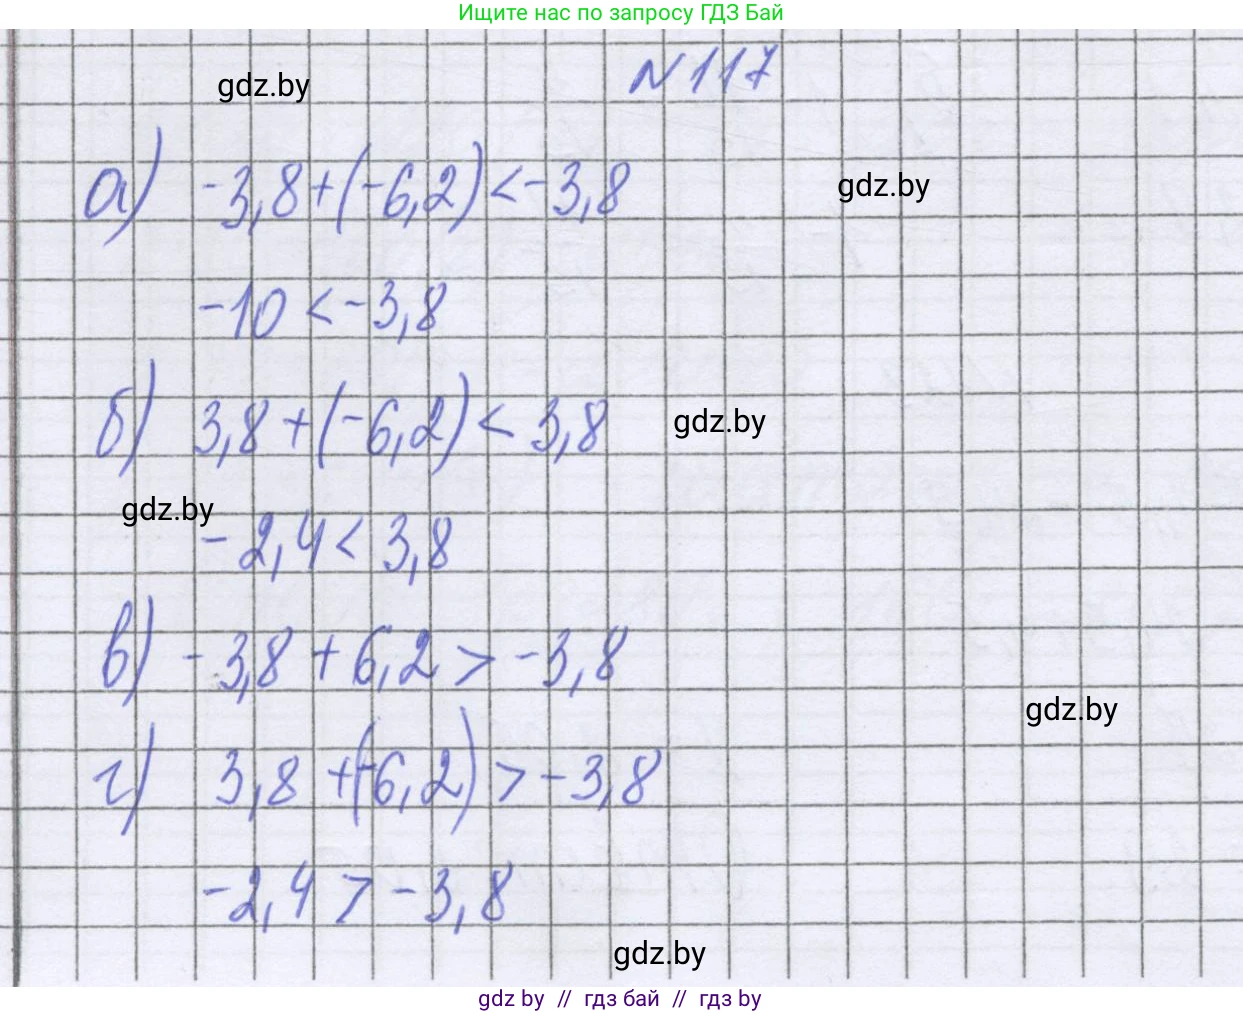 Ищите нас по запросу ГДЗ Бай
gdz.by
N117
а) -3,8+(-6,2)<-3,8
gdz.by
-10<-3,8
б) 3,8+(-6,2)<3,8
gdz.by
gdz.by
-2,4<3,8
в) -3,8+6,2>-3,8
gdz.by
г) 3,8+(-6,2)>-3,8
-2,4>-3,8
gdz.by
gdz by // гдз бай // гдз by